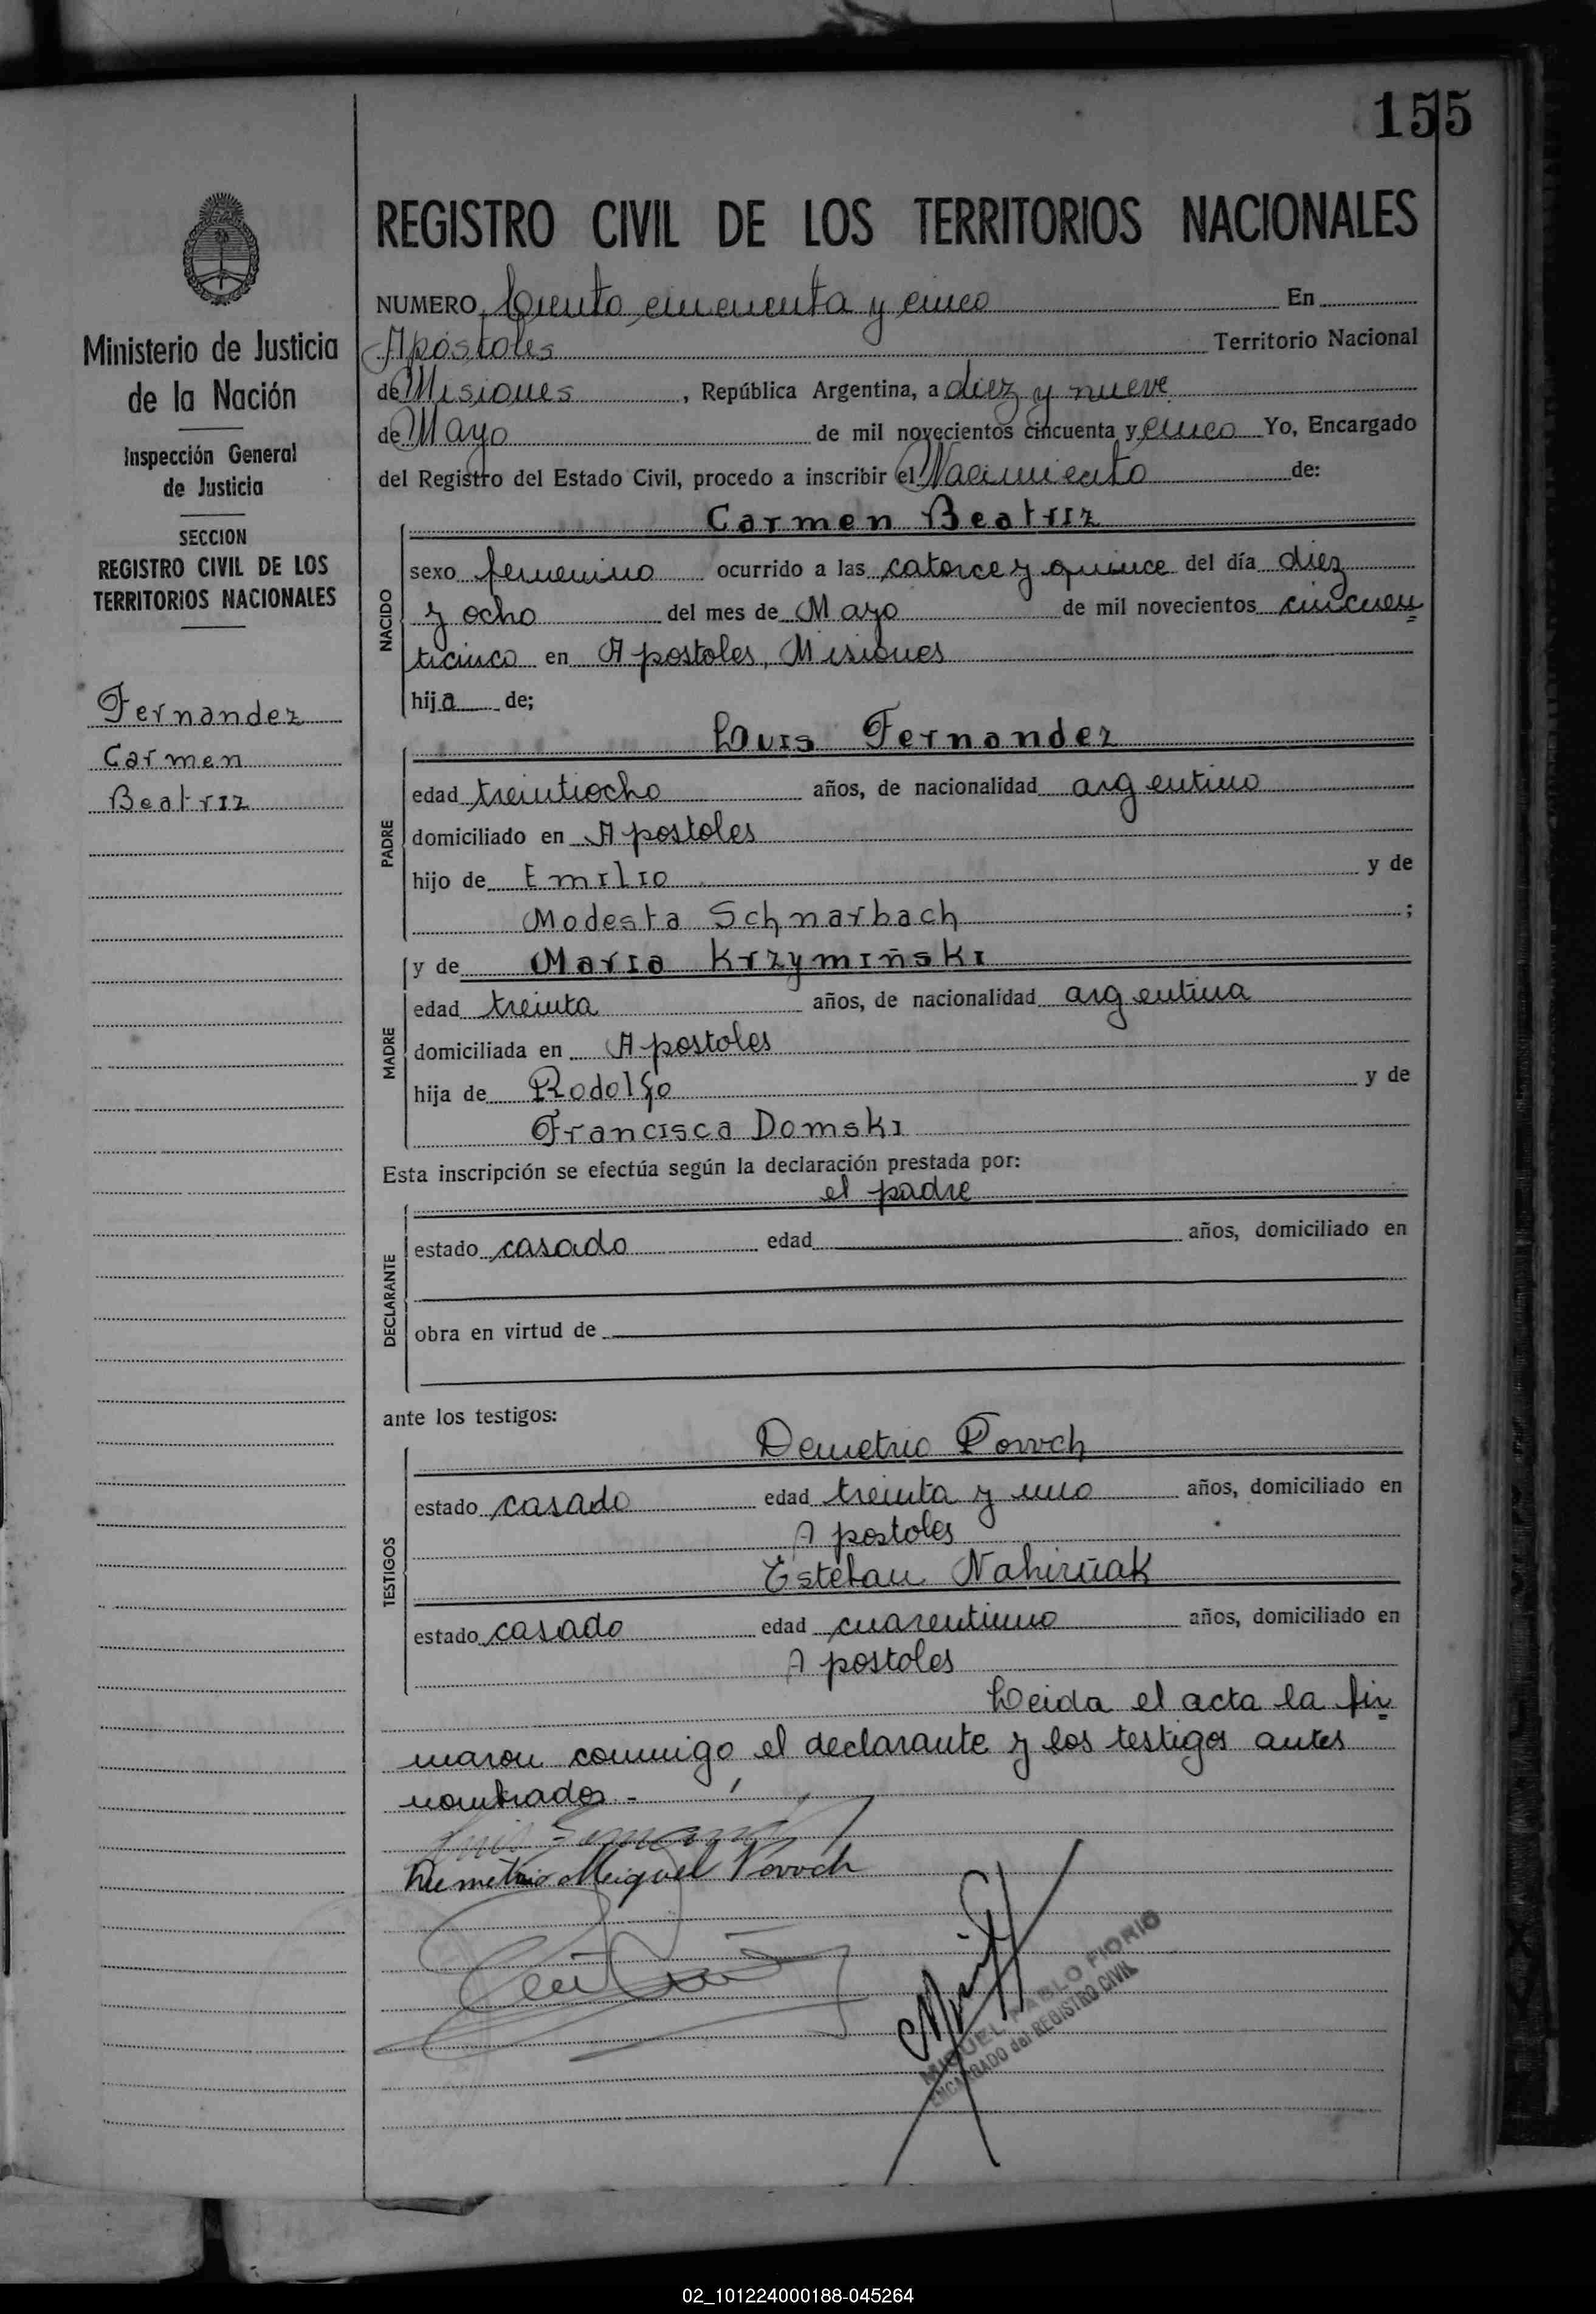 155
REGISTRO CIVIL DE LOS TERRITORIOS NACIONALES
Ministerio de Justicia
de la Nación
Inspección General
de Justicia
SECCION
REGISTRO CIVIL DE LOS
TERRITORIOS NACIONALES
Fernandez
Carmen
Beatriz
NUMERO Ciento cincuenta y cinco En
Apóstoles Territorio Nacional
de Misiones, República Argentina, a diez y nueve
de Mayo de mil novecientos cincuenta y cinco Yo, Encargado
del Registro del Estado Civil, procedo a inscribir el Nacimiento de:
NACIDO
Carmen Beatriz
sexo femenino ocurrido a las catorce y quince del día diez
y ocho del mes de Mayo de mil novecientos cincuen
ticinco en Apostoles, Misiones
hija de;
PADRE
Luis Fernandez
edad treintiocho años, de nacionalidad argentino
domiciliado en Apostoles
hijo de Emilio y de
Modesta Schnarbach ;
MADRE
y de Maria Krzymiñski
edad treinta años, de nacionalidad argentina
domiciliada en Apostoles
hija de Rodolfo y de
Francisca Domski
Esta inscripción se efectúa según la declaración prestada por:
DECLARANTE
el padre
estado casado edad años, domiciliado en
obra en virtud de
ante los testigos:
TESTIGOS
Demetrio
estado casado edad treinta y uno años, domiciliado en
Apostoles
Esteban Nahirñak
estado casado edad cuarentiuno años, domiciliado en
Apostoles
Leida el acta la fir
maron conmigo el declarante y los testigos antes
nombrados.-
Luis Fernandez
Demetrio Miguel
MIGUEL PABLO FIORIO
ENCARGADO del REGISTRO CIVIL
02_101224000188-045264